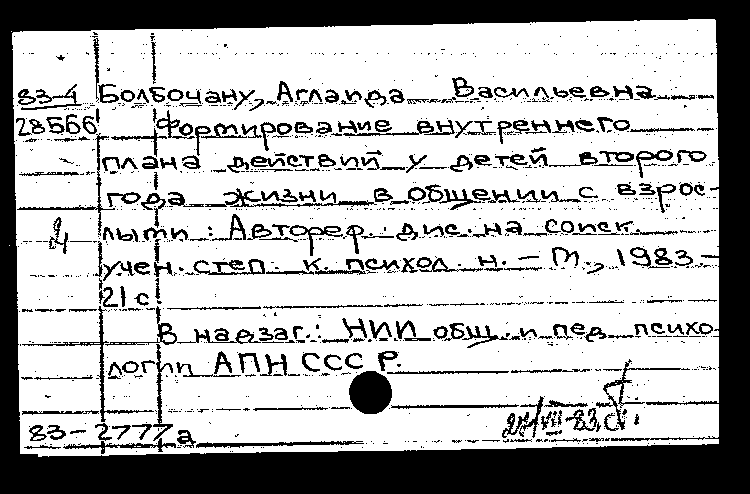 83-4 Болбочану, Аглаида Васильевна
28566 Формирование внутреннего
плана действий у детей второго
года жизни в общении с взрос-
лыми : Автореф. дис. на соиск.
учен. степ. к. психол. н. – М., 1983. –
21 с.
В надзаг.: НИИ общ. и пед. психо-
логии АПН СССР.
83-2777а